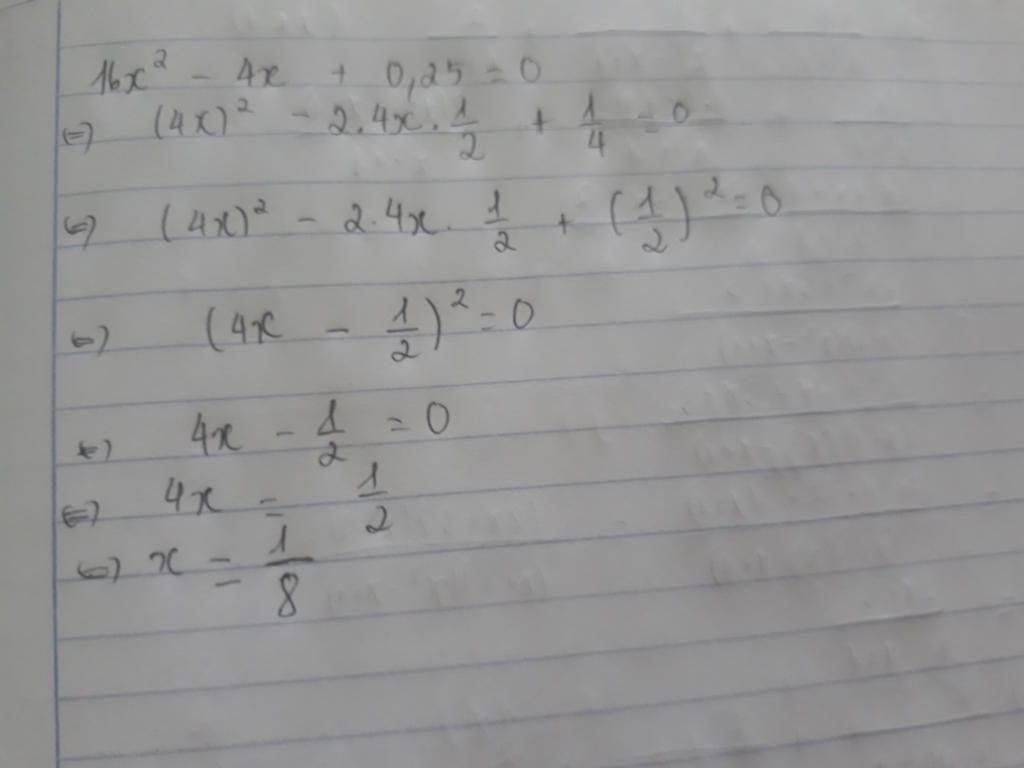 16x² - 4x + 0,25 = 0
⇔ (4x)² - 2.4x.1/2 + 1/4 = 0
⇔ (4x)² - 2.4x.1/2 + (1/2)² = 0
⇔ (4x - 1/2)² = 0
⇔ 4x - 1/2 = 0
⇔ 4x = 1/2
⇔ x = 1/8